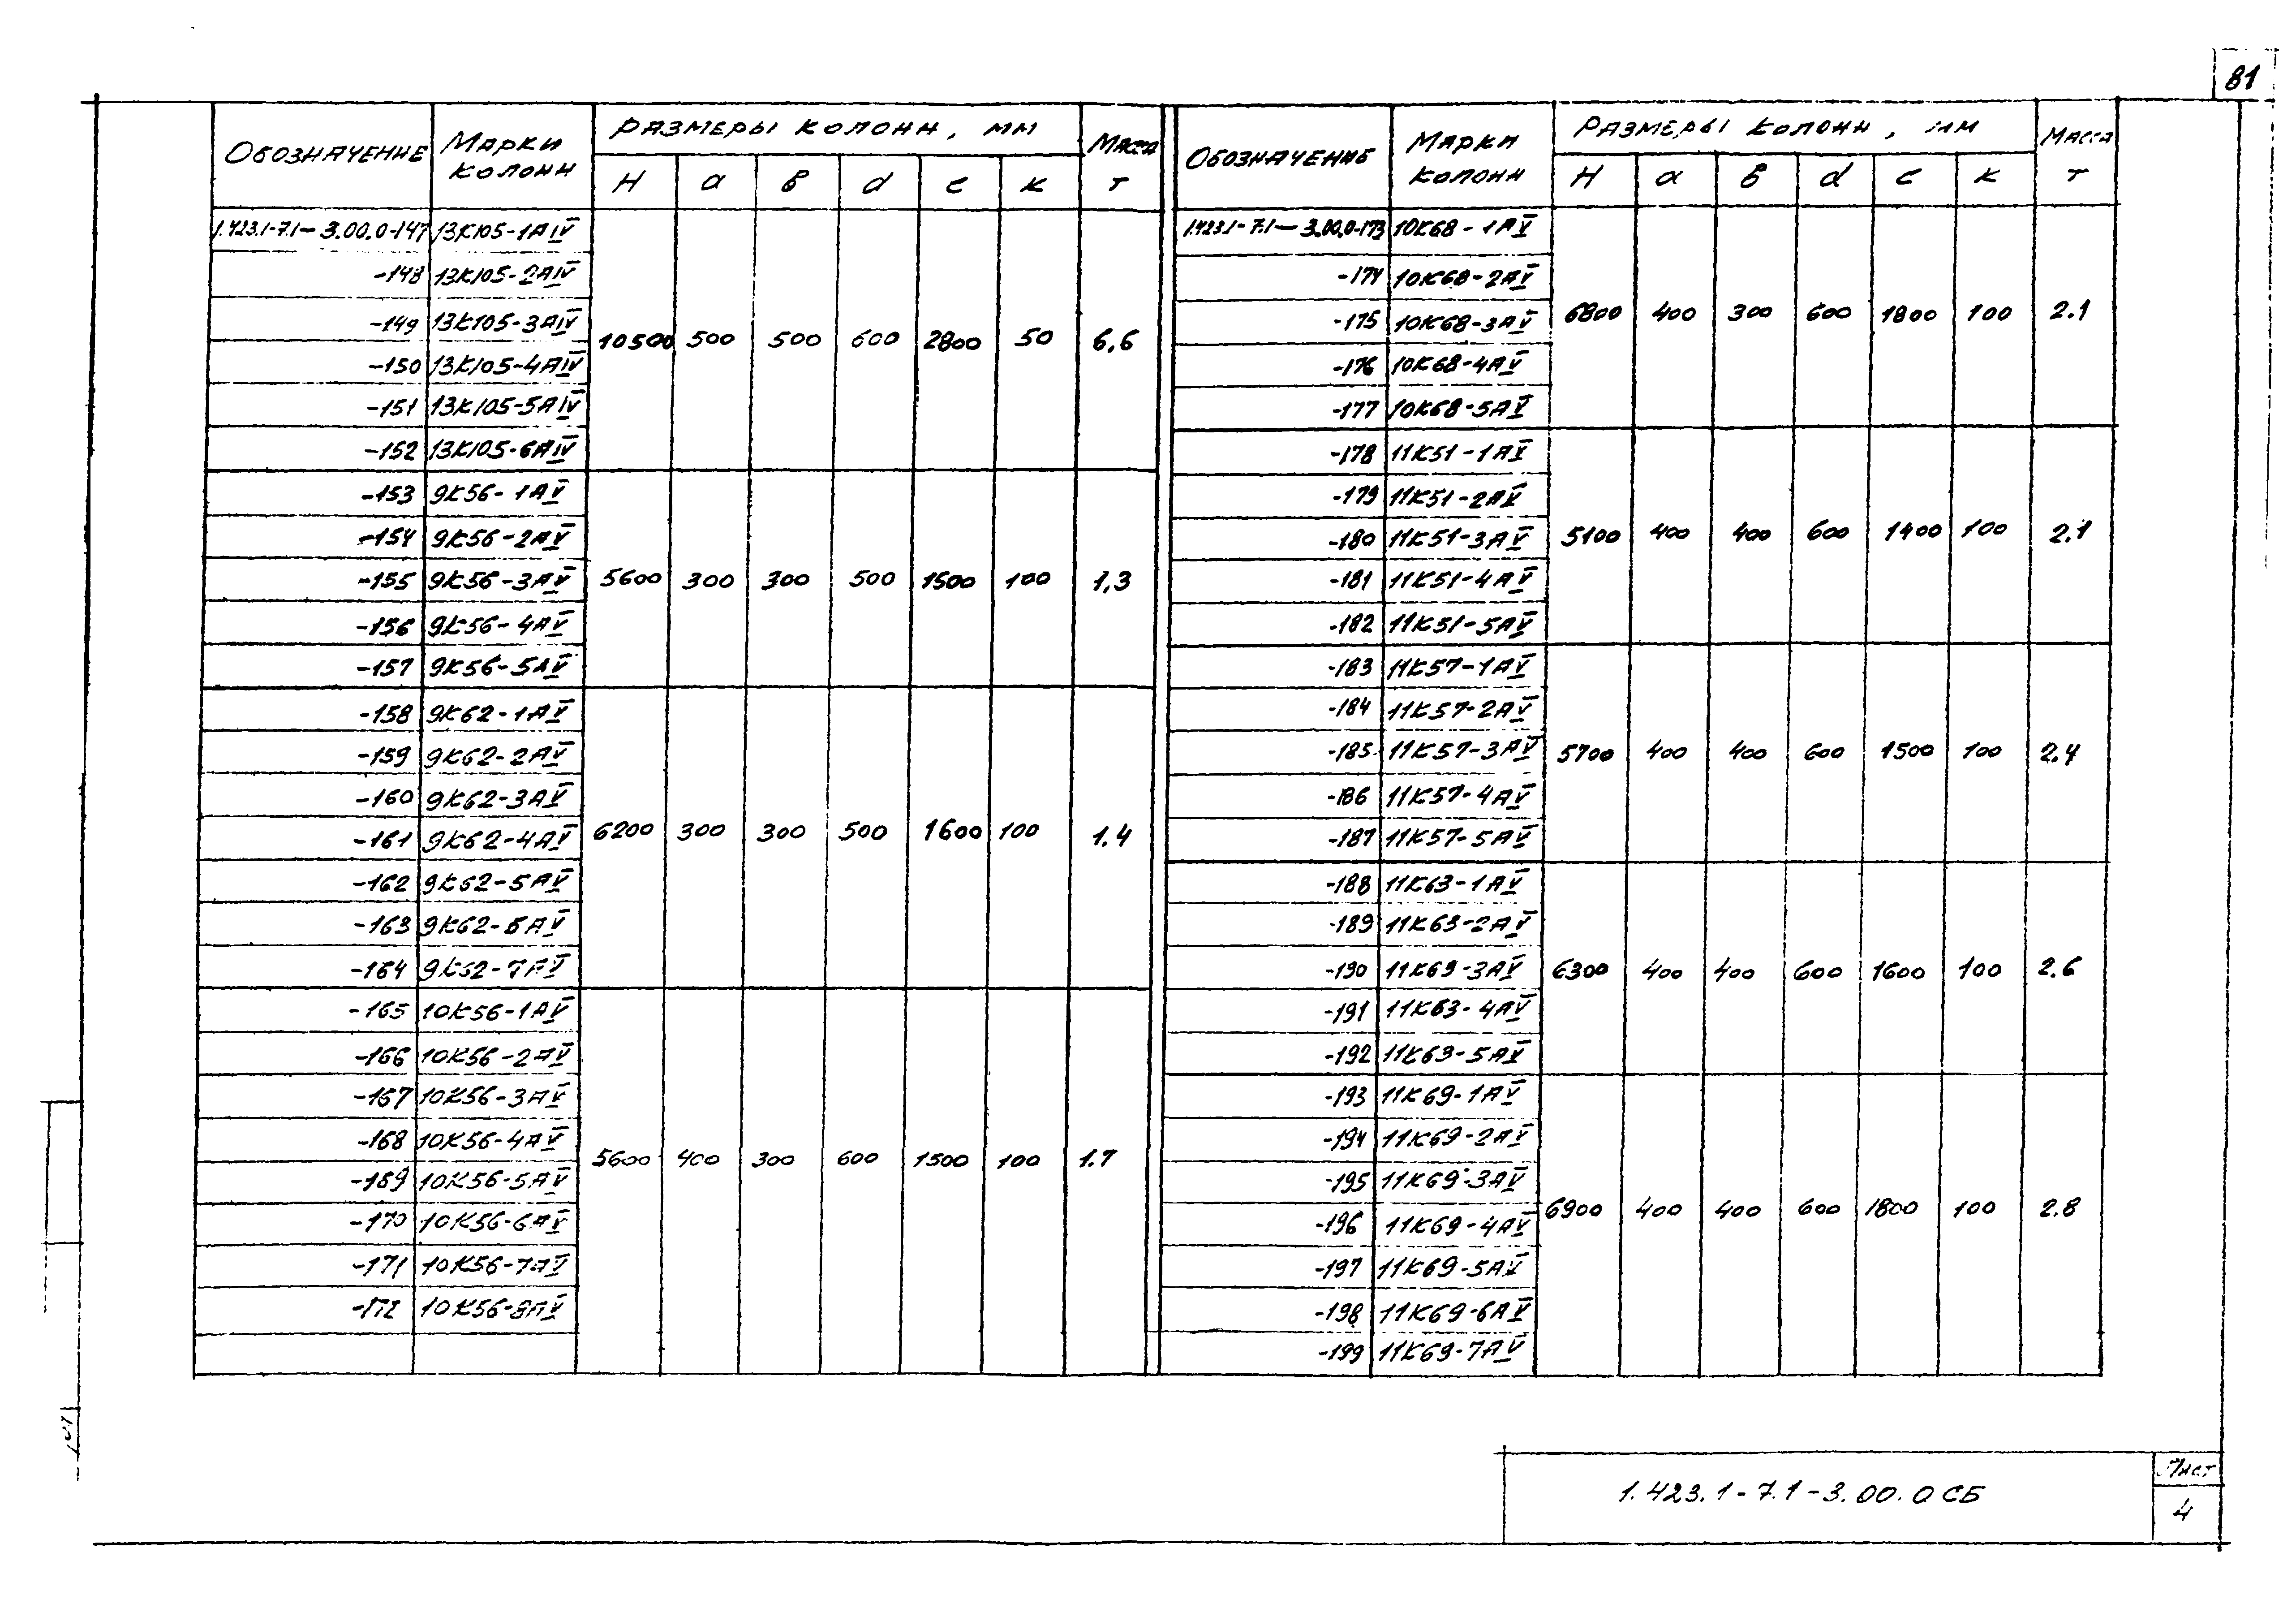 81
Обозначение Марки колонн Размеры колонн, мм Масса т
H a в d c к
1.423.1-7.1-3.00.0-147 13К105-1АIV
-148 13К105-2АIV
-149 13К105-3АIV
10500 500 500 600 2800 50 6.6
-150 13К105-4АIV
-151 13К105-5АIV
-152 13К105-6АIV
-153 9К56-1АV
-154 9К56-2АV
-155 9К56-3АV 5600 300 300 500 1500 100 1.3
-156 9К56-4АV
-157 9К56-5АV
-158 9К62-1АV
-159 9К62-2АV
-160 9К62-3АV
-161 9К62-4АV 6200 300 300 500 1600 100 1.4
-162 9К62-5АV
-163 9К62-6АV
-164 9К62-7АV
-165 10К56-1АV
-166 10К56-2АV
-167 10К56-3АV
-168 10К56-4АV
5600 400 300 600 1500 100 1.7
-169 10К56-5АV
-170 10К56-6АV
-171 10К56-7АV
-172 10К56-8АV
Обозначение Марки колонн Размеры колонн, мм Масса т
H a в d c к
1.423.1-7.1-3.00.0-173 10К68-1АV
-174 10К68-2АV
-175 10К68-3АV 6800 400 300 600 1800 100 2.1
-176 10К68-4АV
-177 10К68-5АV
-178 11К51-1АV
-179 11К51-2АV
-180 11К51-3АV 5100 400 400 600 1400 100 2.1
-181 11К51-4АV
-182 11К51-5АV
-183 11К57-1АV
-184 11К57-2АV
-185 11К57-3АV 5700 400 400 600 1500 100 2.4
-186 11К57-4АV
-187 11К57-5АV
-188 11К63-1АV
-189 11К63-2АV
-190 11К63-3АV 6300 400 400 600 1600 100 2.6
-191 11К63-4АV
-192 11К63-5АV
-193 11К69-1АV
-194 11К69-2АV
-195 11К69-3АV
-196 11К69-4АV 6900 400 400 600 1800 100 2.8
-197 11К69-5АV
-198 11К69-6АV
-199 11К69-7АV
1.423.1-7.1-3.00.0 СБ
Лист
4